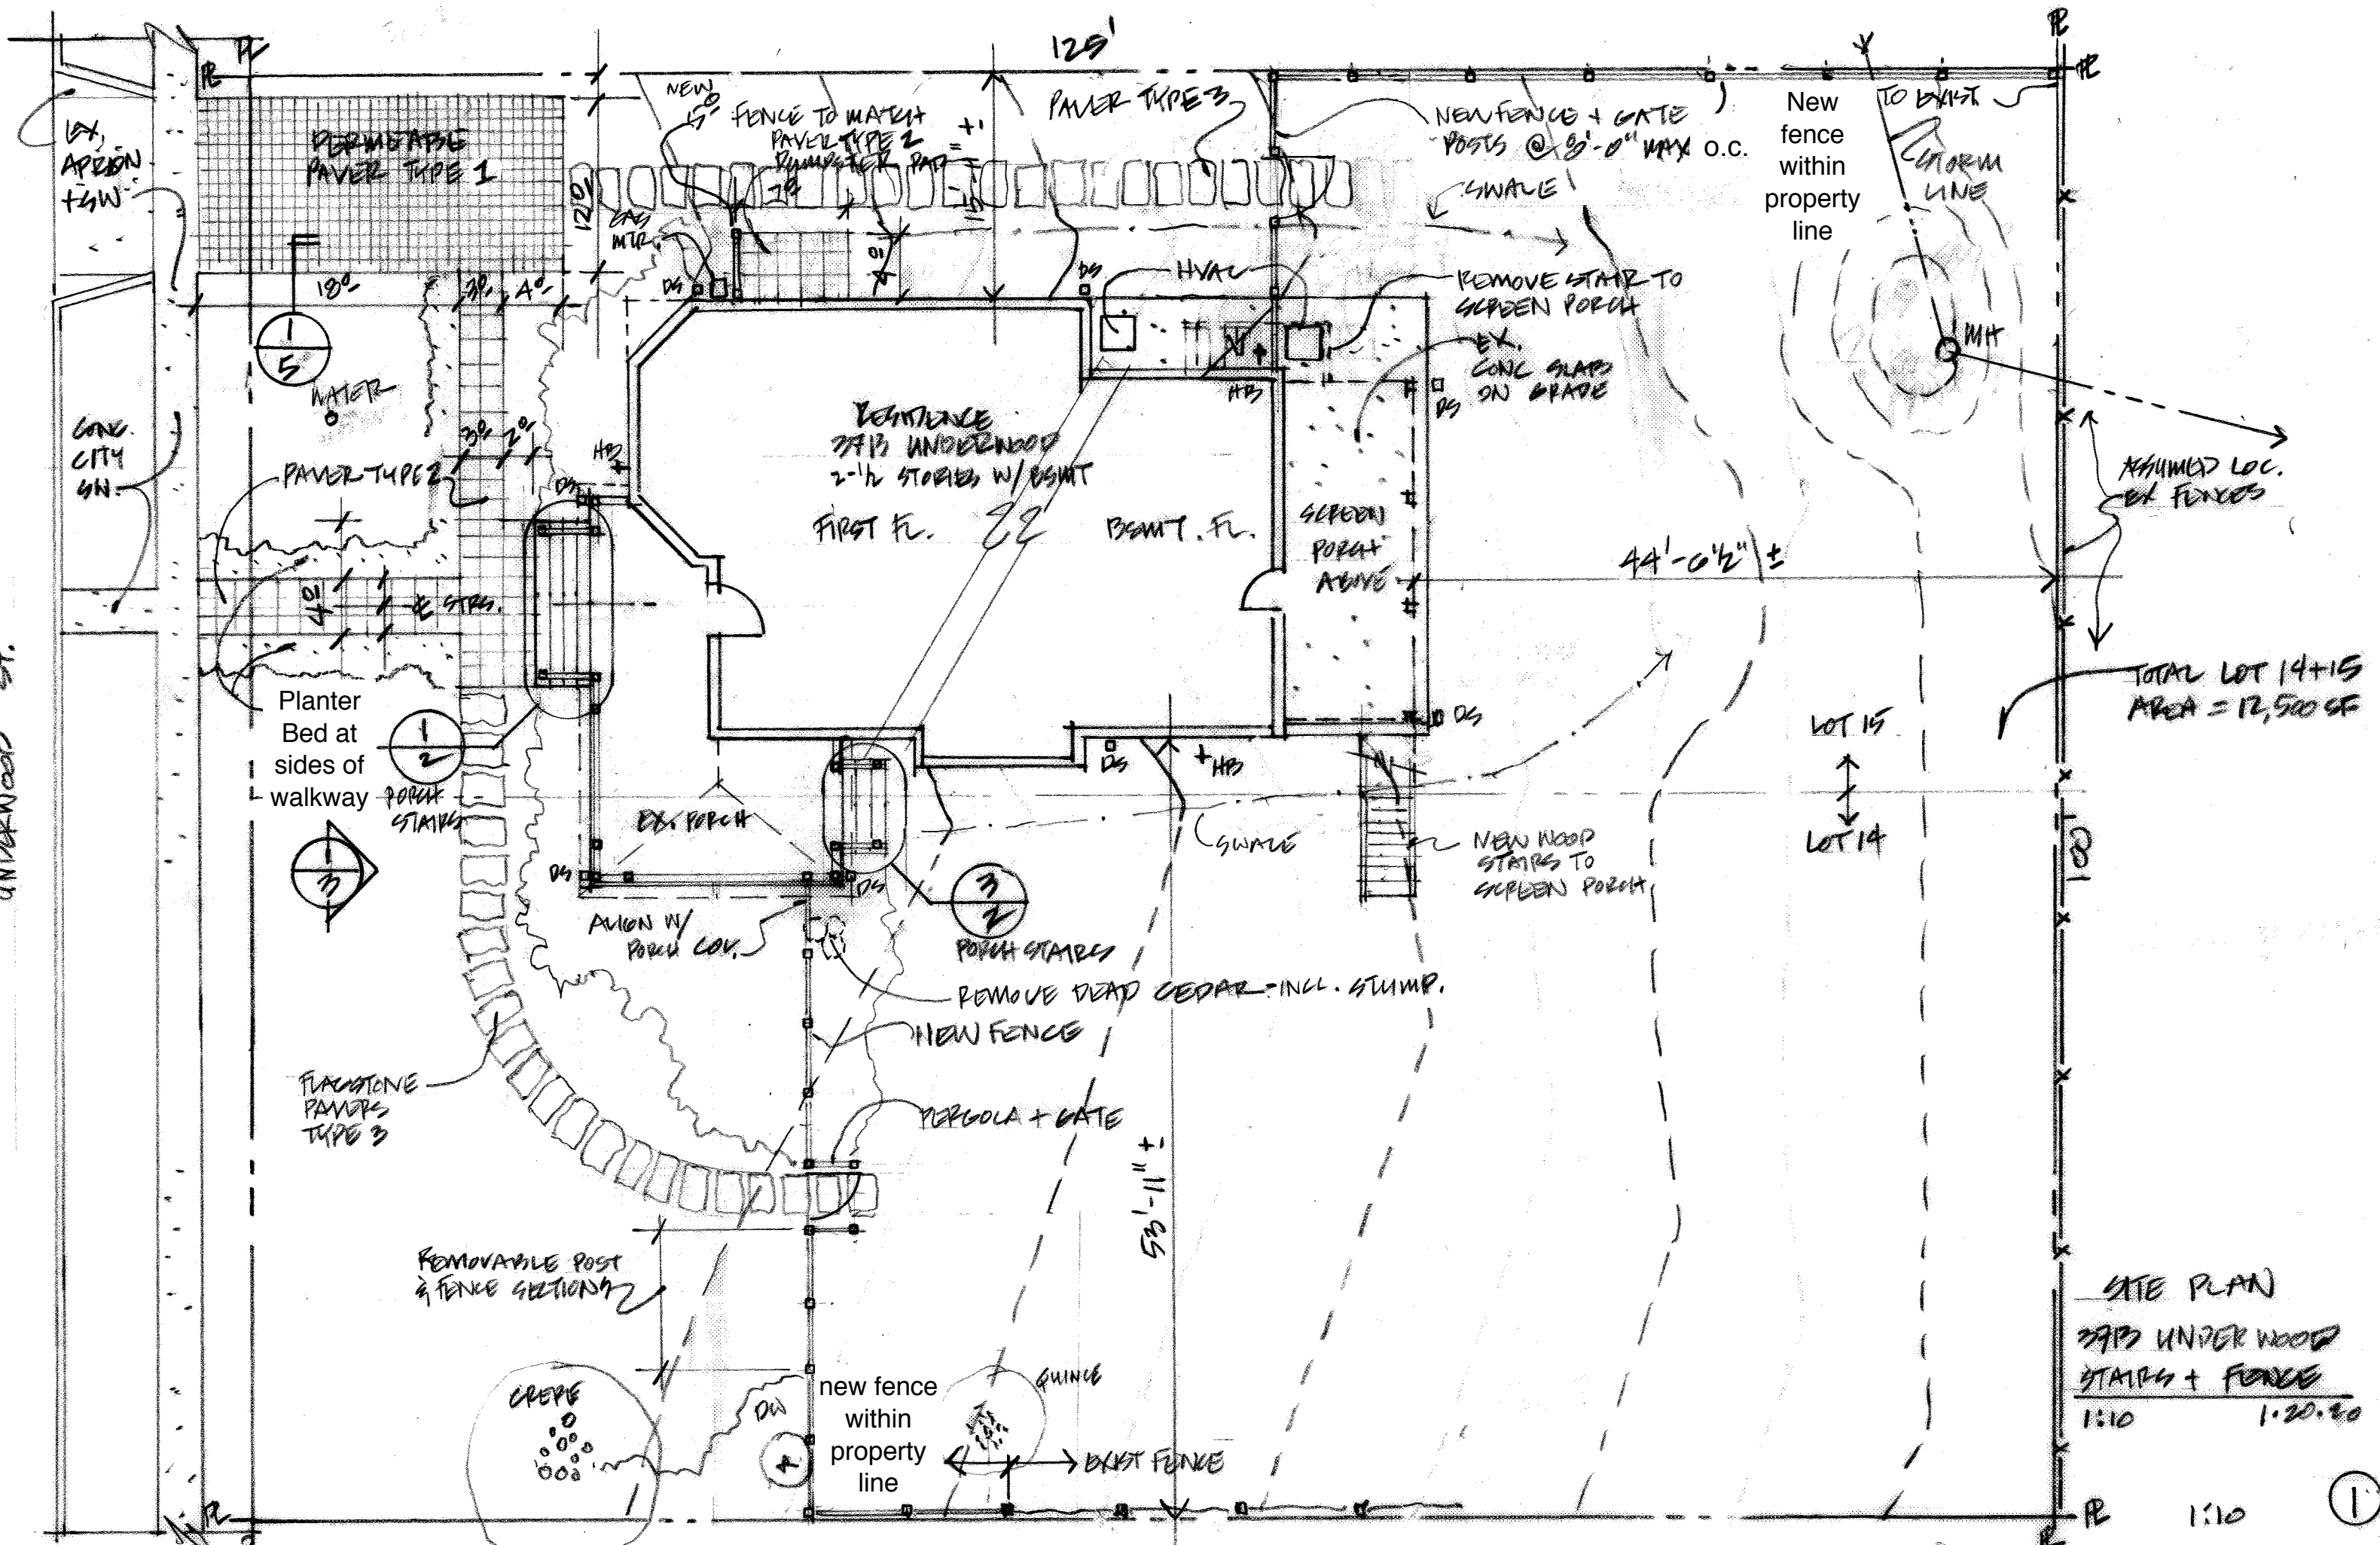 125'
PL
PL
PL
PL
EX.
APRON
+ SW
PERMEABLE
PAVER TYPE 1
NEW
5'0
FENCE TO MATCH
PAVER TYPE 2
DUMPSTER PAD
PAVER TYPE 3
NEW FENCE + GATE
POSTS @ 8'-0" MAX O.C.
SWALE
New
fence
within
property
line
TO EXIST
STORM
LINE
12'0
GAS
MTR.
4'0
DS
DS
HVAC
REMOVE STAIR TO
SCREEN PORCH
EX.
CONC SLAB
ON GRADE
DS
MH
18'0
3'0
4'0
1
5
WATER
CONC.
CITY
SW.
PAVER TYPE 2
3'0
2'0
HB
DS
HB
RESIDENCE
3713 UNDERWOOD
2-1/2 STORIES W/ BSMT
FIRST FL.
22'
BSMT. FL.
SCREEN
PORCH
ABOVE
44'-6 1/2" ±
ASSUMED LOC.
EX FENCES
4'0
℄ STRS.
UNDERWOOD ST.
Planter
Bed at
sides of
walkway
1
2
PORCH
STAIRS
1
3
EX. PORCH
DS
DS
DS
HB
DS
SWALE
NEW WOOD
STAIRS TO
SCREEN PORCH
LOT 15
LOT 14
TOTAL LOT 14+15
AREA = 12,500 SF
100'
ALIGN W/
PORCH COL.
3
2
PORCH STAIRS
REMOVE DEAD CEDAR - INCL. STUMP.
NEW FENCE
FLAGSTONE
PAVERS
TYPE 3
PERGOLA + GATE
53'-11" ±
REMOVABLE POST
& FENCE SECTIONS
CREPE
DW
new fence
within
property
line
QUINCE
EXIST FENCE
SITE PLAN
3713 UNDERWOOD
STAIRS + FENCE
1:10
1.20.20
PL
PL
1:10
1